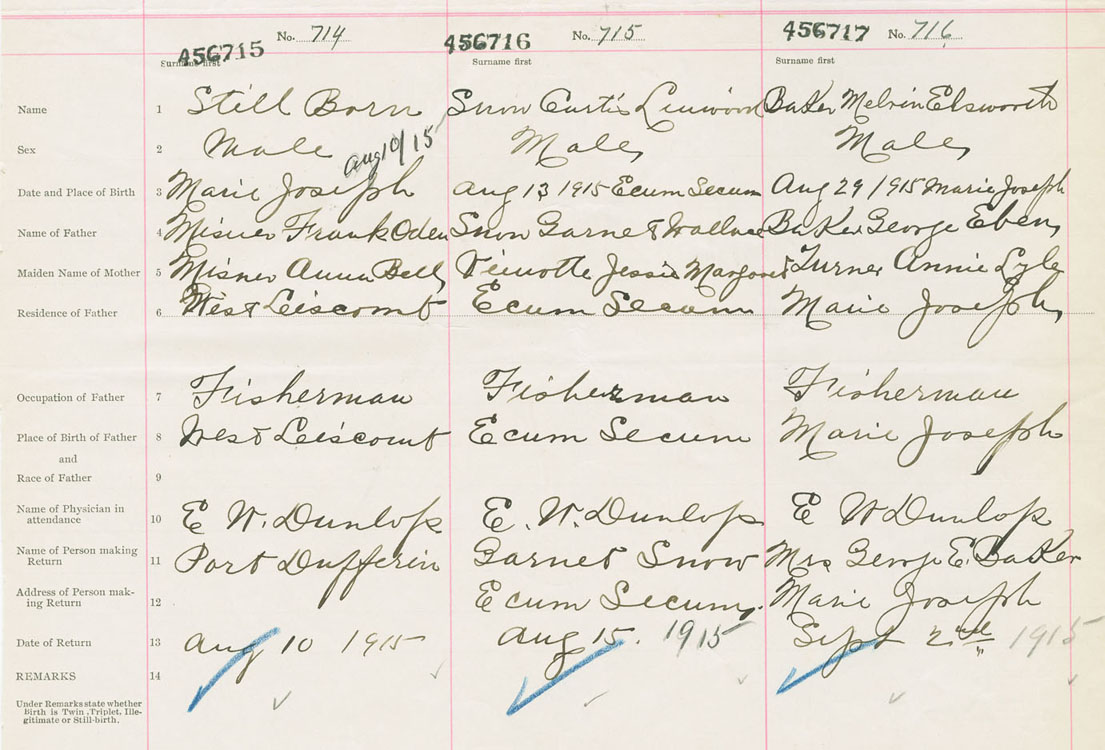 456715 No. 714 456716 No. 715 456717 No. 716
Surname first Surname first Surname first
Name 1 Still Born Snow Curtis Linwood Baker Melvin Elsworth
Sex 2 Male Aug 10/15 Male Male
Date and Place of Birth 3 Marie Joseph Aug 13 1915 Ecum Secum Aug 29 1915 Marie Joseph
Name of Father 4 Misner Frank Oden Snow Garnet Wallace Baker George Eben
Maiden Name of Mother 5 Misner Anna Bell Jessie Margaret Turner Annie Lyle
Residence of Father 6 West Leiscomb Ecum Secum Marie Joseph
Occupation of Father 7 Fisherman Fisherman Fisherman
Place of Birth of Father 8 West Leiscomb Ecum Secum Marie Joseph
and
Race of Father 9
Name of Physician in
attendance 10 E W. Dunlop E. W. Dunlop E W Dunlop
Name of Person making
Return 11 Port Dufferin Garnet Snow Mrs George E. Baker
Address of Person mak-
ing Return 12 Ecum Secum. Marie Joseph
Date of Return 13 Aug 10 1915 Aug 15. 1915 Sept 2nd 1915
REMARKS 14
Under Remarks state whether
Birth is Twin, Triplet, Ille-
gitimate or Still-birth.